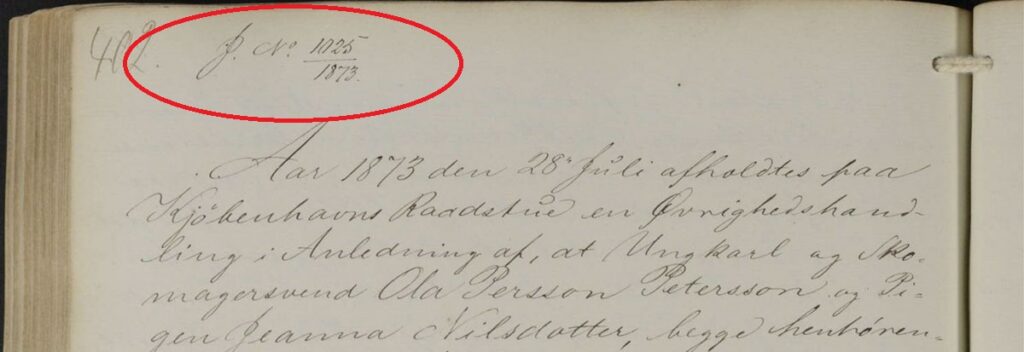 402. J. No. 1025/1873.
Aar 1873 den 28' Juli afholdtes paa
Kjöbenhavns Raadstue en Øvrighedshand-
ling i Anledning af, at Ungkarl og Sko-
magersvend Ola Persson Petersson og Pi-
gen Jeanna Nilsdotter, begge henhören-